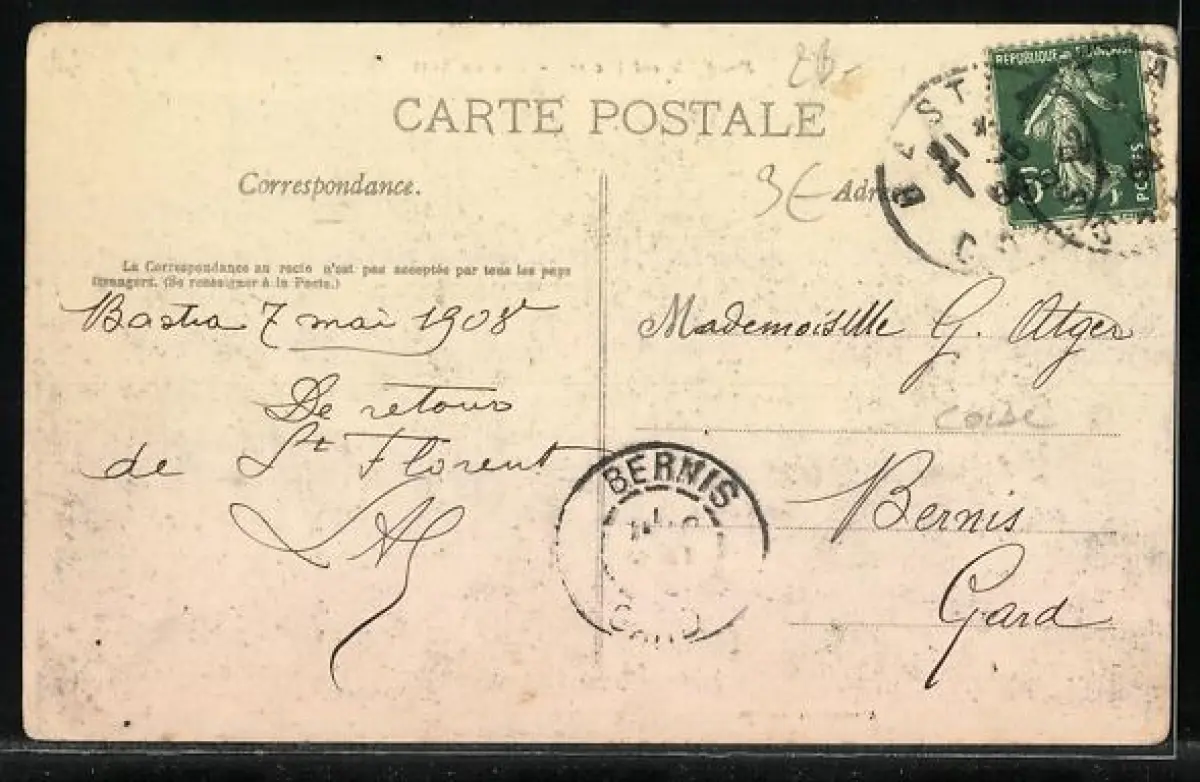 2B-
CARTE POSTALE
Correspondance.
3€
Adr
La Correspondance au recto n'est pas acceptée par tous les pays
étrangers. (Se renseigner à la Poste.)
Bastia 7 mai 1908
De retour
de St Florent
Mademoiselle G. Atger
Corse
Bernis
Gard
REPUBLIQUE FRANÇAISE
POSTES
5
BASTIA
BERNIS
GARD